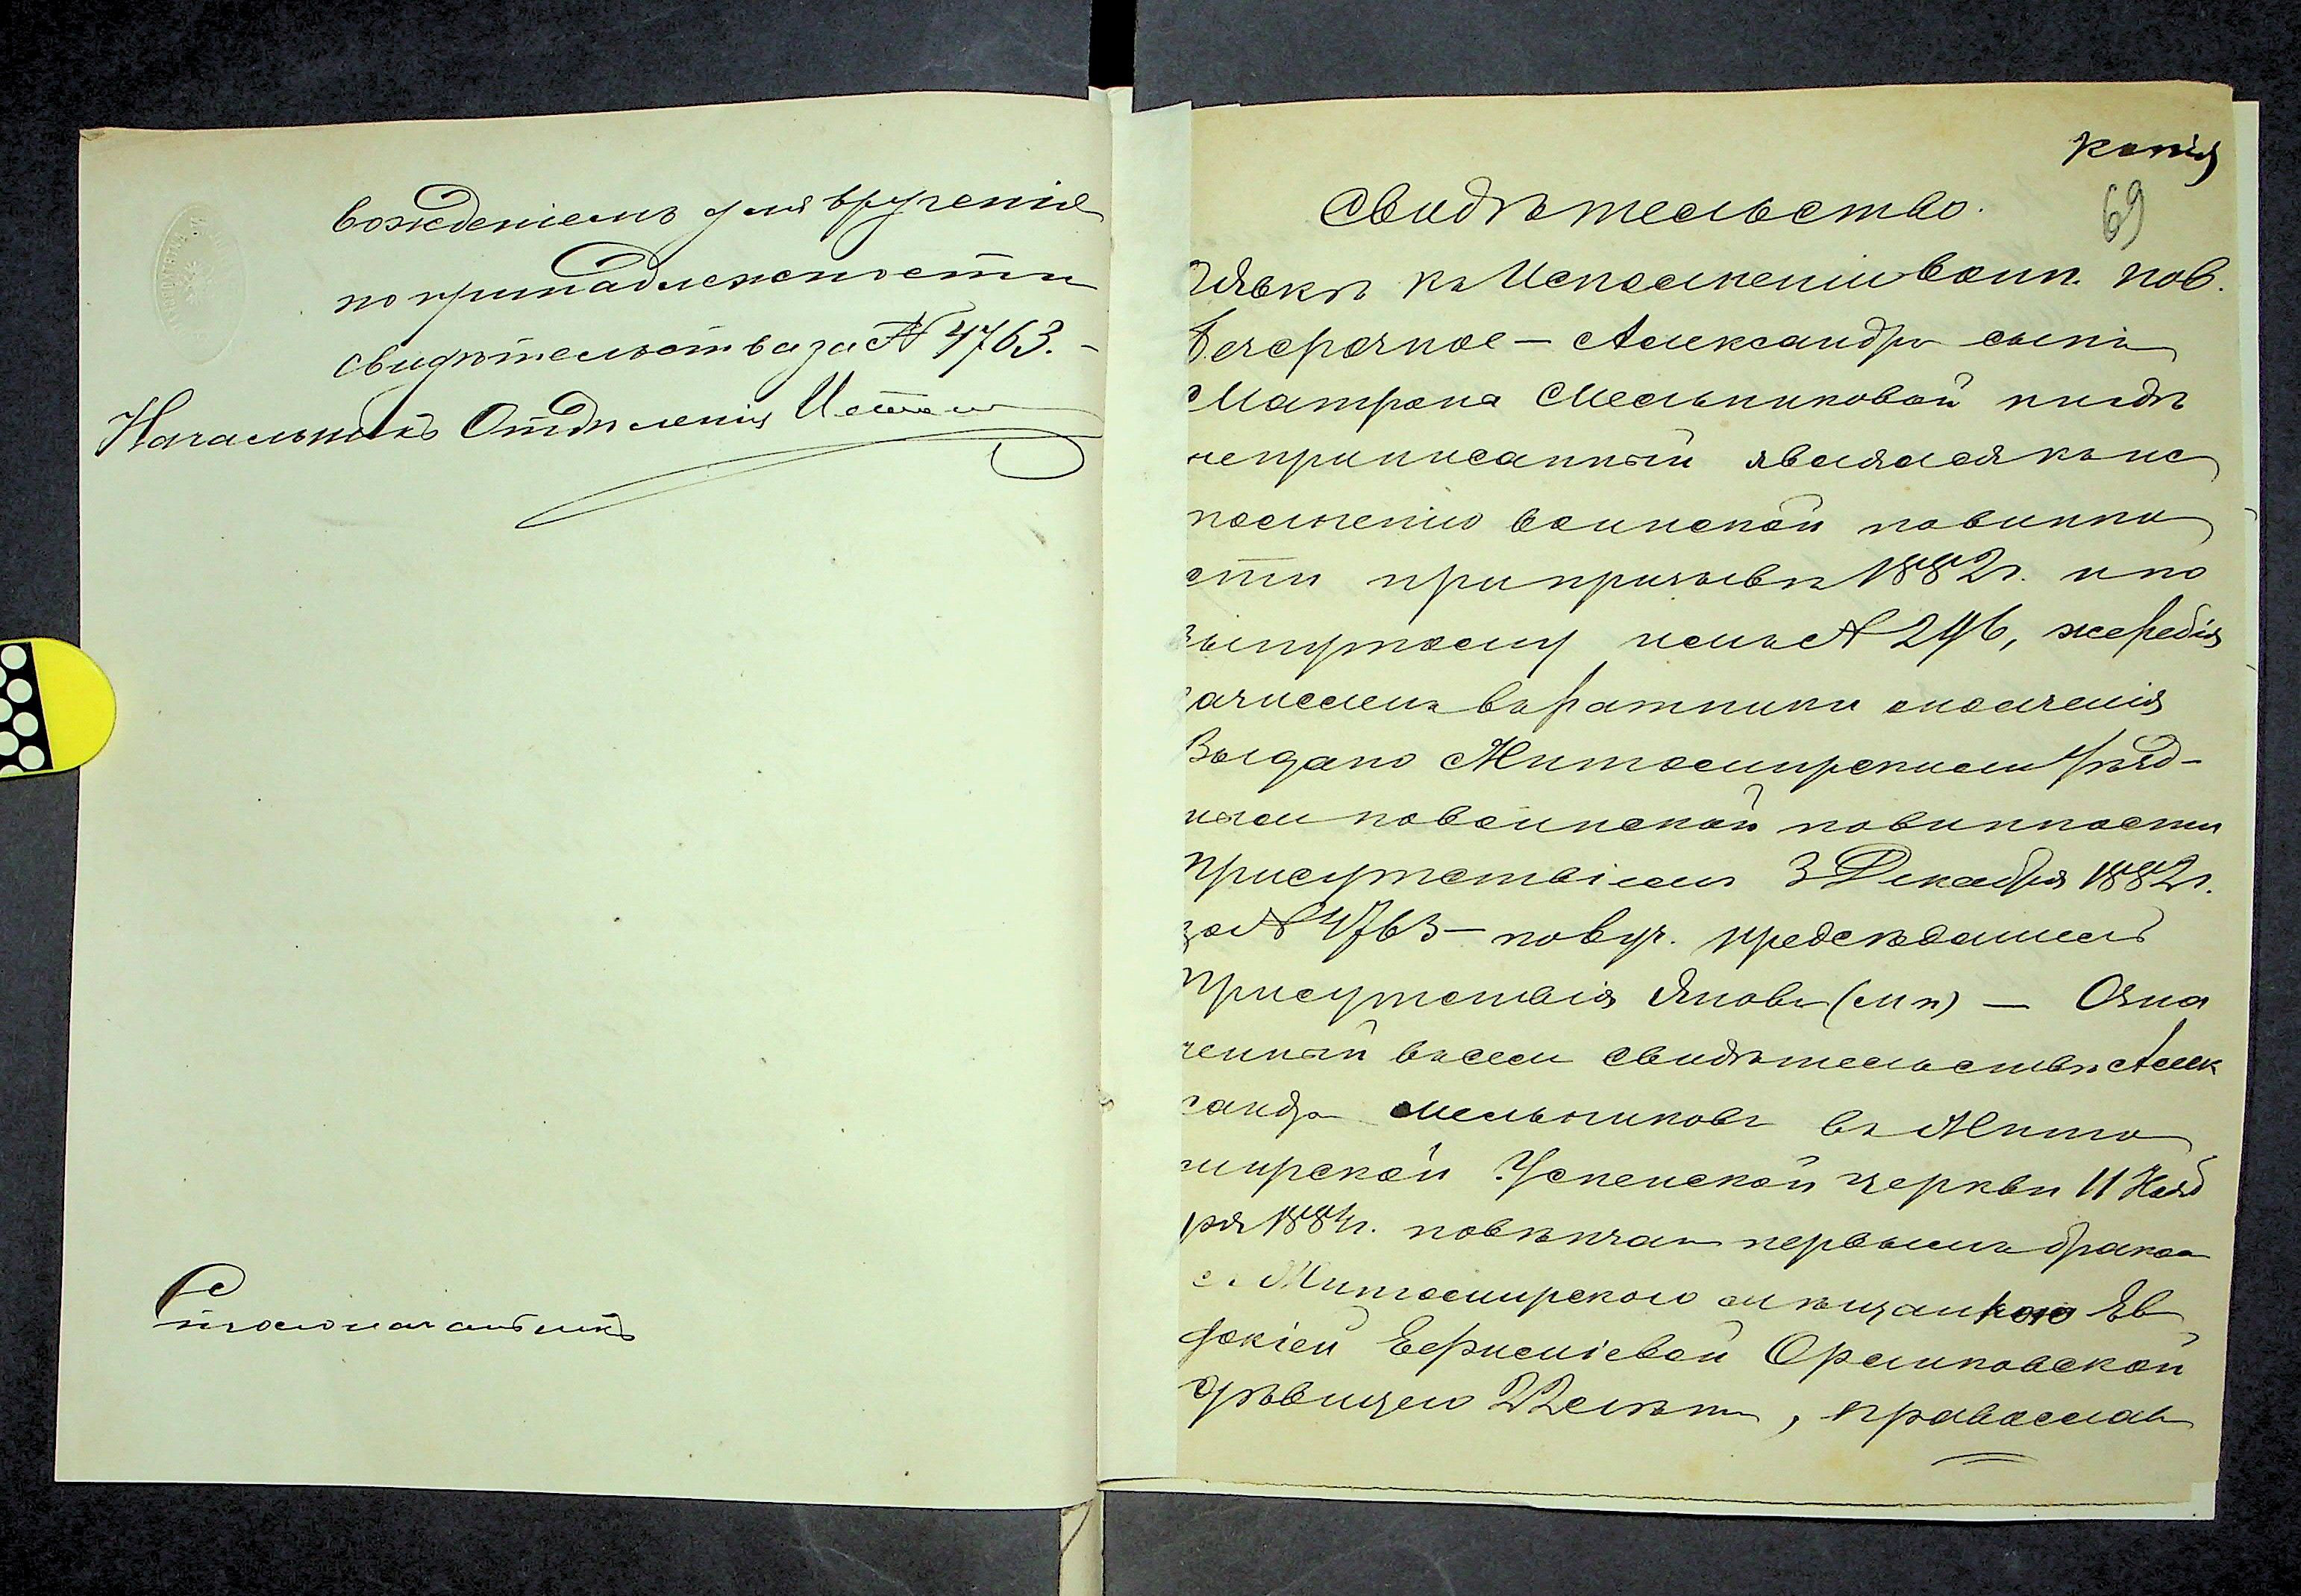 вожденiемъ для врученiя
по принадлежности
свидѣтельства за № 4763.-
Начальникъ Отдѣленiя
Столоначальникъ
Копiя
69
Свидѣтельство.
О явкѣ къ Исполненiю воин. пов.
Безсрочное – Александръ сынъ
Матрона Мельниковой нигдѣ
неприписанный являлся къ ис
полненiю воинской повинно
сти при призывѣ 1882г. и по
вынутому имъ № 296, жеребiя
зачисленъ въ ратники ополченiя
Выдано Житомирскимъ уѣзд-
нымъ по воинской повинности
присутствiемъ 3 Декабря 1882г.
за № 4763 – подпис. предсѣдатель
присутствiя Яновъ (м п) — Озна
ченный въ семъ свидѣтельствѣ Алек
сандръ Мельниковъ въ Жито
мирской Успенской церкви 11 Нояб
ря 1884г. повѣнчанъ первымъ бракомъ
съ Житомирскою мѣщанкою Ев
докiей Ефимiевой
дѣвицею 22 лѣтъ, православ